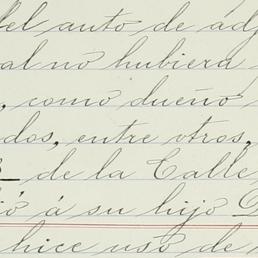 del auto de adj
al no hubiera
, como dueño
dos, entre otros,
de la Calle
ió á su hijo D
hice uso de